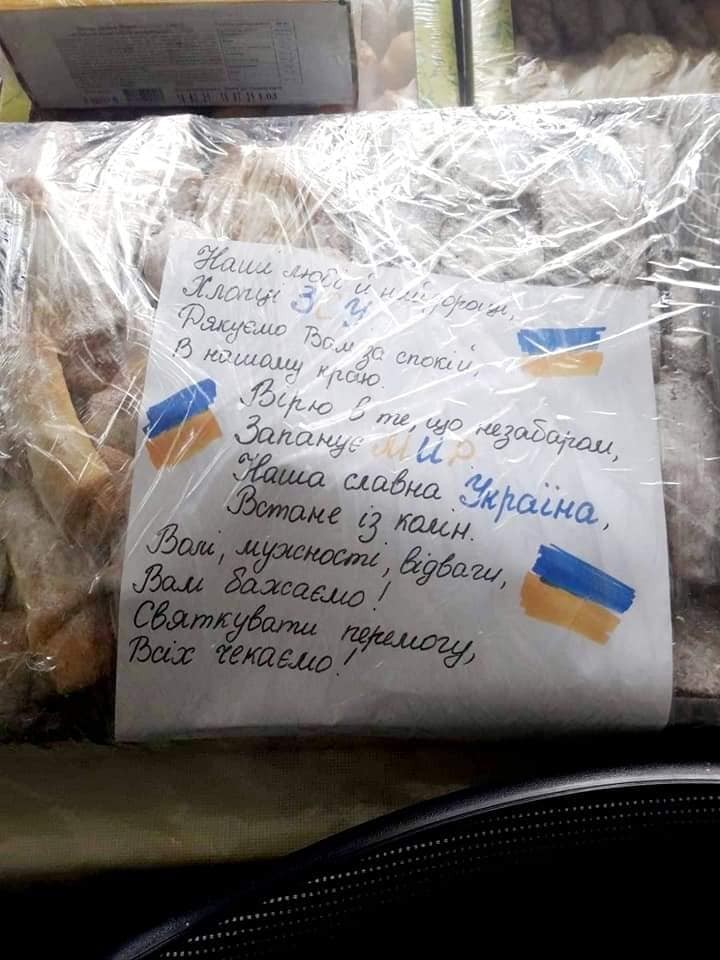 Наші любі й найдорощі,
Хлопці ЗСУ
Дякуємо Вам за спокій,
В нашому краю.
Вірю в те, що незабаром,
Запанує МИР
Наша славна Україна,
Встане із колін.
Волі, мужності, відваги,
Вам бажаємо!
Святкувати перемогу,
Всіх чекаємо!